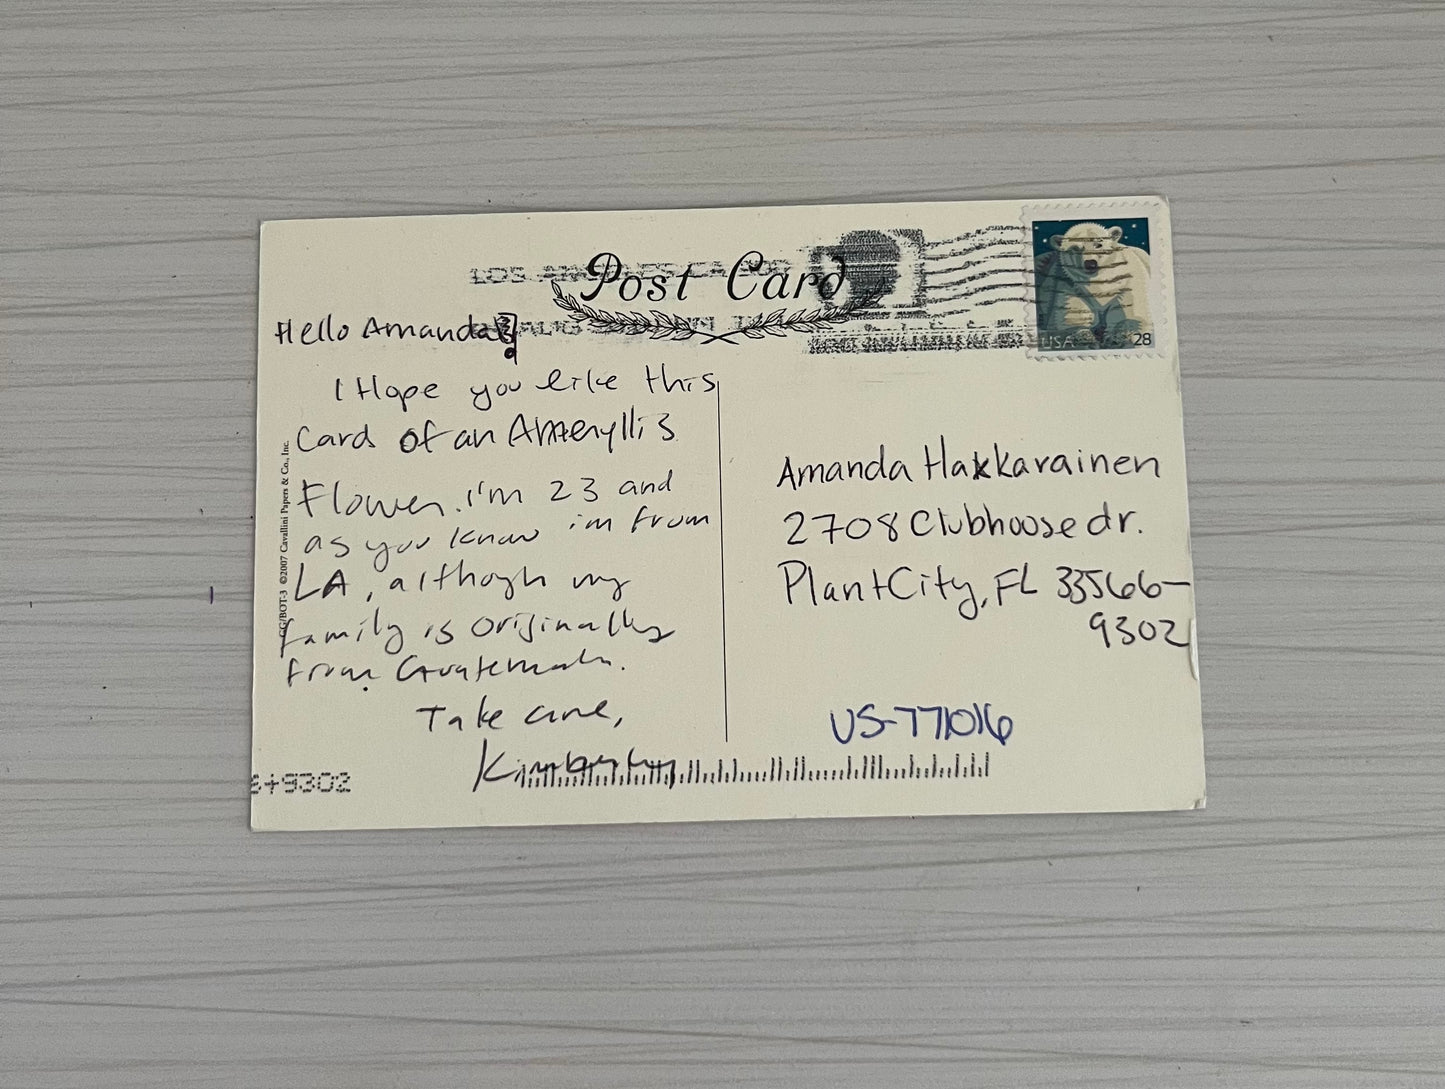 Post Card
LOS ANGELES CA
AUG
USA 28
Hello Amanda!
I Hope you like this
Card of an Ameryllis
Flower. I'm 23 and
as you know i'm from
LA, although my
family is originally
from Guatemala.
Take care,
Kimberly
GG/BOT-3 ©2007 Cavallini Papers & Co., Inc.
Amanda Hakkarainen
2708 Clubhouse dr.
Plant City, FL 33566-
9302
US-771016
6+9302